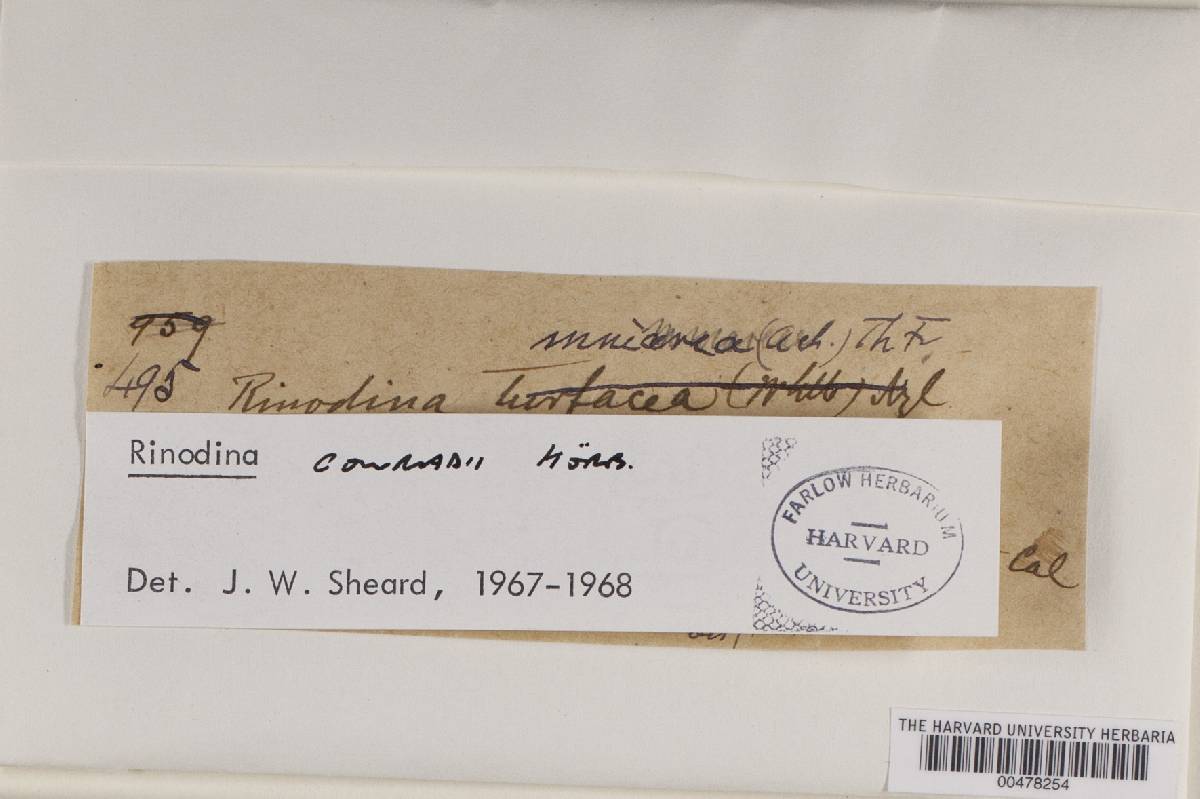 959
mniaraea (Ach.) Th Fr
495 Rinodina turfacea (Whlb) Nyl
Rinodina CONRADII KÖRB.
FARLOW HERBARIUM
HARVARD
UNIVERSITY
Cal
Det. J. W. Sheard, 1967-1968
THE HARVARD UNIVERSITY HERBARIA
00478254